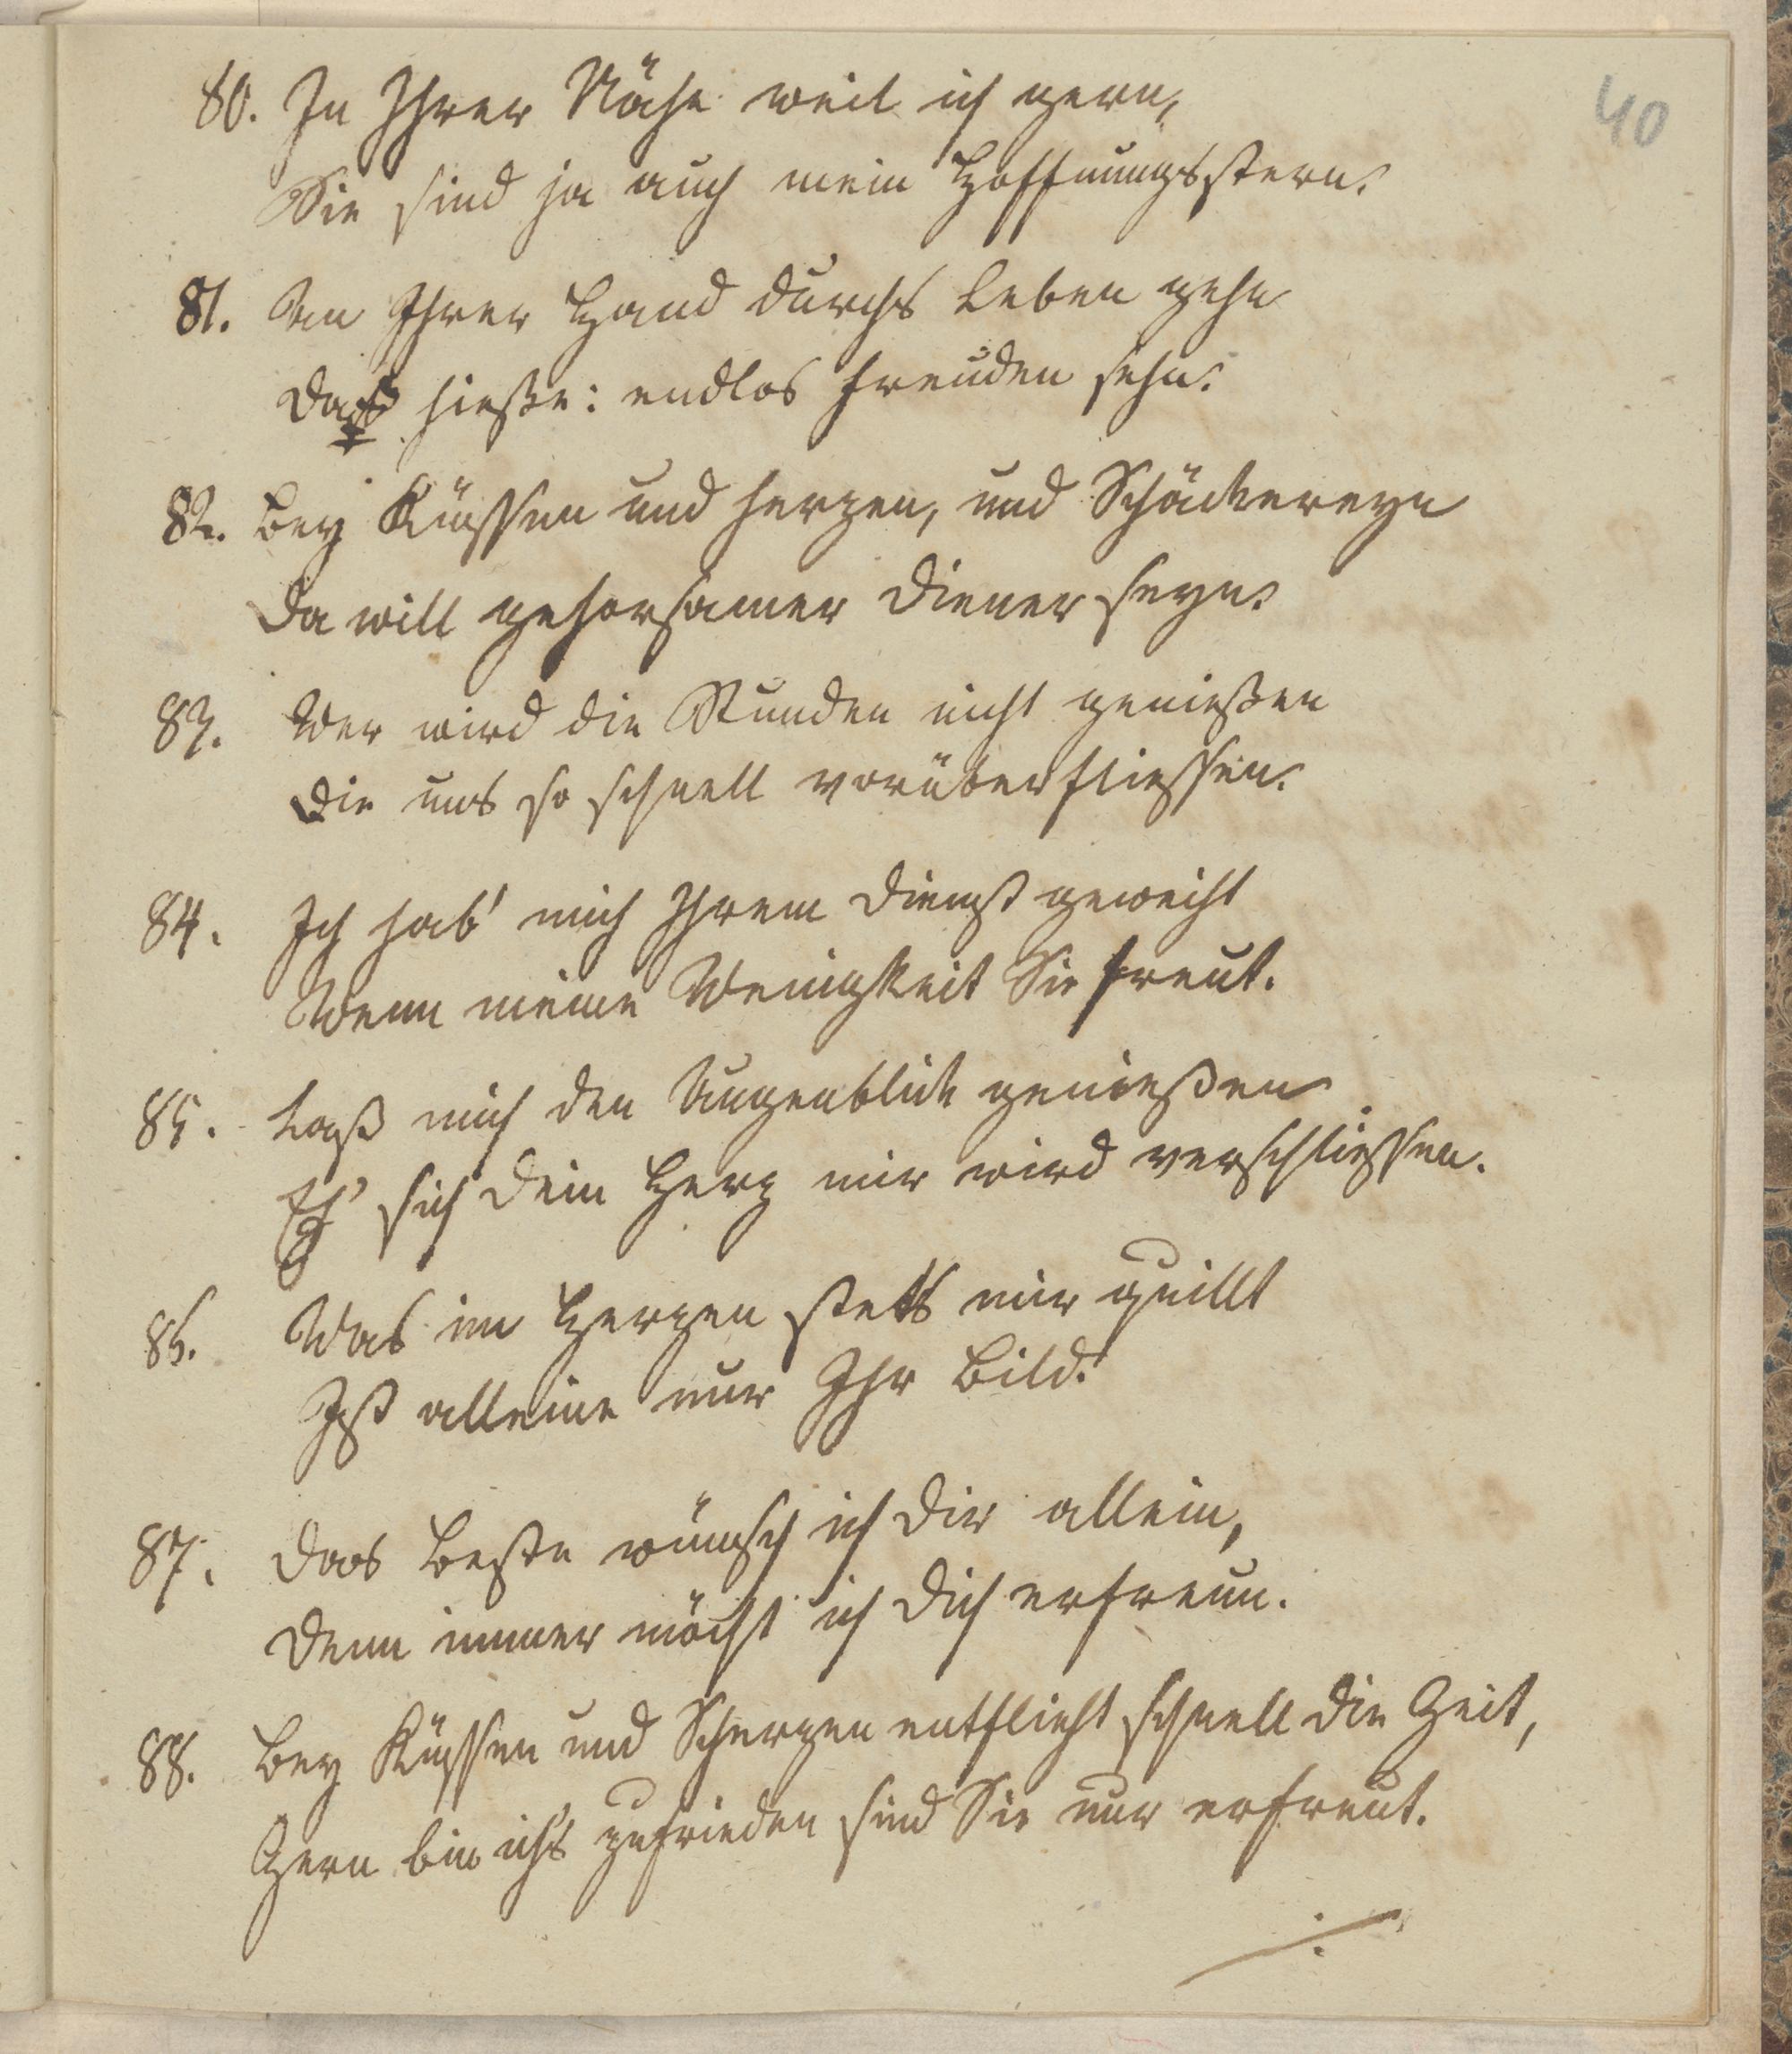 40
80. In Ihrer Nähe weil ich gern,
Sie sind ja auch mein Hoffnungsstern.
81. An Ihrer Hand durchs Leben gehn
das hieße: endlos Freuden sehn.
82. Bey Küssen und herzen, und Schäckereyn
Da will gehorsamer Diener seyn.
83. Wer wird die Stunden nicht genießen
Die uns so schnell vorüberfliessen.
84. Ich hab' mich Ihrem Dienst geweiht
Wenn meine Wenigkeit Sie freut.
85. Laß mich den Augenblick genießen
Eh' sich dein Herz mir wird verschliessen.
86. Was im Herzen stets mir quillt
Ist alleine nur Ihr Bild.
87. Das Beste wünsch ich Dir allein,
Denn immer möcht ich Dich erfreun.
88. Bey Küssen und Scherzen entflieht schnell die Zeit,
Gern bin ichs zufrieden sind Sie nur erfreut.